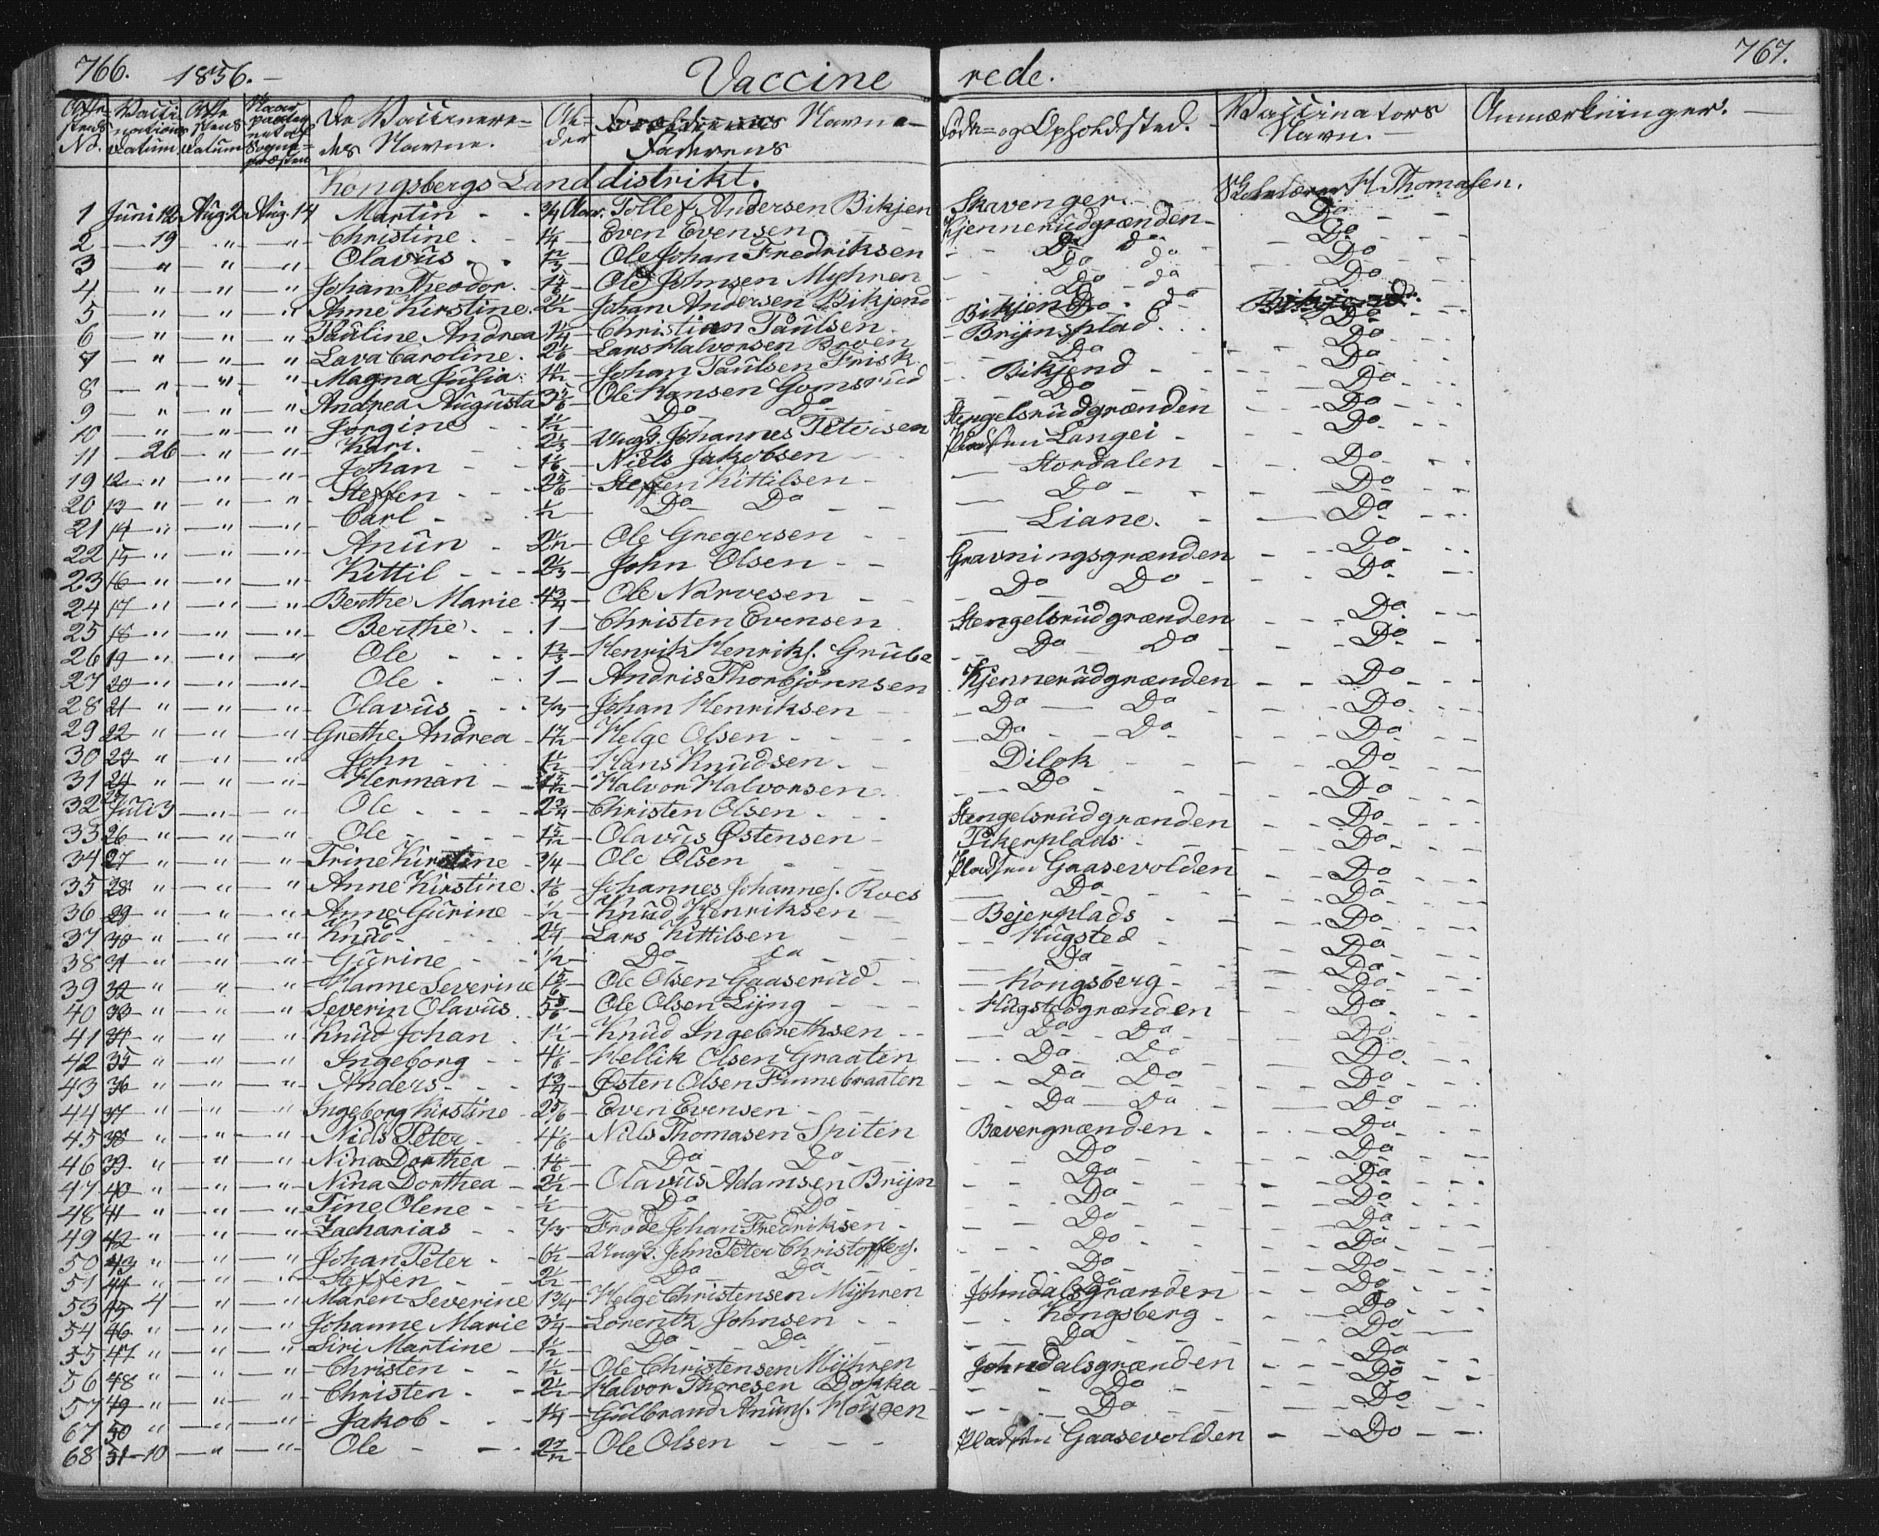 766. 1856. Vaccine rede. 767.
De Vaccinere- des Navne. Al- der Forældrenes Navne Faderens Føde- og Opholdsted. Vaccinators Navn. Anmærkninger.
Kongsbergs Landdistrikt.
1 Juni 12 Aug. 2 Aug. 14 Martin 3/4 Aar. Tollef Andersen Bikjen Skavenger. Skolelærer H. Thomasen.
2 19 " " Christine 1 1/4 Even Evensen Kjennerudgrænden Do
3 " " " Olavus Ole Johan Fredriksen Do do Do
4 " " " Johan Theodor. Ole Johnsen Myhren Do do Do
5 " " " Anne Kirstine 2 1/2 Johan Andersen Bikjend Do da Do
6 " " " Pauline Andrea Christian Paulsen Bikjend
7 " " " Lava Caroline. 2 1/6 Lars Halvorsen Broen Brijnsplad Do
8 " " " Magna Julia Johan Paulsen Frisk Do Do
9 " " " Andrea Augusta Ole Hansen Gomsrud Bikjend Do
10 " " " Jørgine 1 1/2 Do Do Do Do
11 26 " " Kari. Ungk. Johannes Petersen Stengelsrudgrænden Do
19 12 " " " Johan 1 1/6 Niels Jakobsen Pladsen Langei Do
20 13 " " " Steffen Steffen Kittilsen Stordalen Do
21 14 " " " Carl 1/2 Do Do Do Do
22 15 " " " Anun 2 1/2 Ole Gregersen Liane. Do
23 16 " " " Kittil 2 2/3 John Olsen Gravningsgrænden Do
24 17 " " " Berthe Marie 4 3/4 Ole Narvesen Do Do Do
25 18 " " " Berthe 1 Christen Evensen Stengelsrudgrænden Do
26 19 " " " Ole 1 2/3 Henrik Henriks. Grube Do Do Do
27 20 " " " Ole 1 Andris Thorbjørnsen Kjennerudgrænden Do
28 21 " " " Olavus 2/3 Johan Henriksen Do Do Do
29 22 " " " Grethe Andrea Helge Olsen Do Do Do
30 23 " " " John 1 1/2 Hans Knudsen Dilok Do
31 24 " " " Herman Halvor Halvorsen Do Do
32 25 Juli 3 " " Ole 2 3/4 Christen Olsen Stengelsrudgrænden Do
33 26 " " " Ole Olavus Østensen Pikerplads Do
34 27 " " " Trine Kirstine 3/4 Ole Olsen Pladsen Gaasevolden Do
35 28 " " " Anne Kirstine 1 1/6 Johannes Johannes. Roes Do Do
36 29 " " " Anne Gurine 1/2 Knud Henriksen Bejerplads Do
37 30 " " " Knud 2 1/4 Lars Kittilsen Hugsted Do
38 31 " " " Gurine 1/2 Do da Do Do
39 32 " " " Hanne Severine 1 5/6 Ole Olsen Gaaserud Kongsberg Do
40 33 " " " Severin Olavus 5 5/6 Ole Olsen Lijng Hugstedgrænden Do
41 34 " " " Knud Johan 1 1/2 Knud Ingebrethsen Do Do Do
42 35 " " " Ingeborg 4 1/6 Hellik Olsen Graaten Do Do Do
43 36 " " " Anders 1 3/4 Østen Olsen Finnebraaten Do Do Do
44 37 " " " Ingeborg Kirstine 2 5/6 Even Evensen Do Da Do
45 38 " " " Niels Peter 4 1/6 Niels Thomasen Spiten Bævergrænden Do
46 39 " " " Nina Dorthea 1 1/6 Do Do Do Do
47 40 " " " Nina Dorthea 2 1/2 Olavus Adamsen Brijn Do Do
48 41 " " " Tine Olene 1/2 Do Do Do Do
49 42 " " " Zacharias 2/3 Frode Johan Fredriksen Do Do
50 43 " " " Johan Peter 6 1/2 Ungk. John Peter Christoffers. Do Do
51 44 " " " Steffen 2 1/2 Do Do Do Do
53 45 4 " " Maren Severine 1 3/4 Helge Christensen Mijhren Johndalsgrænden Do
54 46 " " " Johanne Marie 3 1/4 Lorentz Johnsen Kongsberg Do
55 47 " " " Siri Martine 1 1/2 Do Do Do Do
56 48 " " " Christen 1 1/2 Ole Christensen Mijhren Johndalsgrænden Do
57 49 " " " Christen 2 1/2 Halvor Thoresen Dokka Do Do
67 50 " " Jakob 1 1/4 Gulbrand Anuns. Hougen Do Do
68 51 10 " " Ole Ole Olsen Pladsen Gaasevolden Do